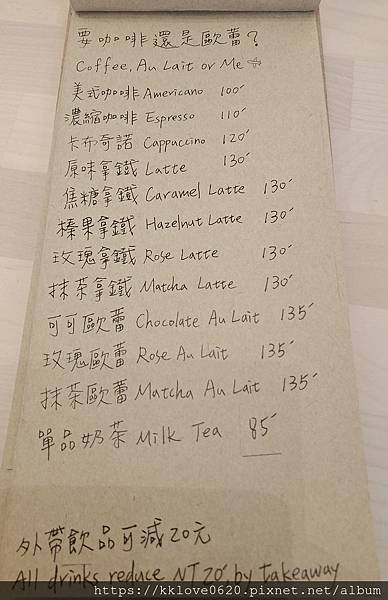 要咖啡還是歐蕾?
Coffee, Au Lait or Me
美式咖啡 Americano 100
濃縮咖啡 Espresso 110
卡布奇諾 Cappuccino 120
原味拿鐵 Latte 130
焦糖拿鐵 Caramel Latte 130
榛果拿鐵 Hazelnut Latte 130
玫瑰拿鐵 Rose Latte 130
抹茶拿鐵 Matcha Latte 130
可可歐蕾 Chocolate Au Lait 135
玫瑰歐蕾 Rose Au Lait 135
抹茶歐蕾 Matcha Au Lait 135
單品奶茶 Milk Tea 85
外帶飲品可減20元
All drinks reduce NT20 by takeaway
https://kklove0620.pixnet.net/album